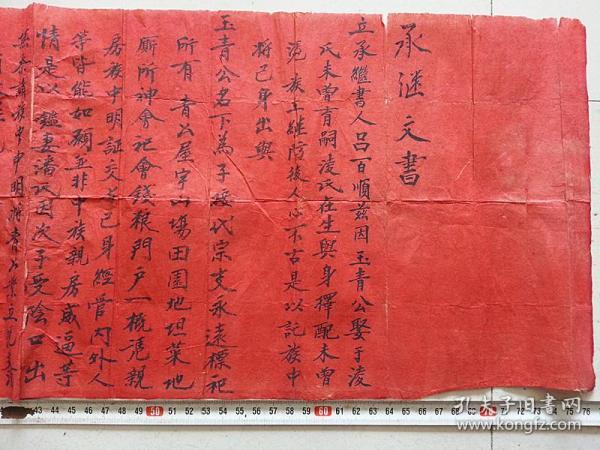 承继文書
立承继書人吕百順茲因玉青公娶于凌
氏未曾育嗣凌氏在生與身擇配未曾
憑族立継防後人心不古是以託族中
將己身出與
玉青公名下為子接代宗支永遠標祀
所有青公屋宇山塲田園地坦菜地
厠所神會社會錢粮門户一概憑親
房族中明証交与己身經管内外人
等皆能如願並非中族親房威逼等
情是以鑑妻潘氏因次子受陰口出
族中中明將青公業
43 44 45 46 47 48 49 50 51 52 53 54 55 56 57 58 59 60 61 62 63 64 65 66 67 68 69 70 71 72 73 74 75 76
孔夫子旧書网
www.kongfz.com